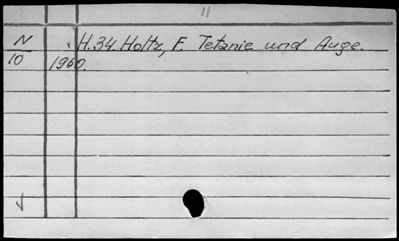 11
N H.34. Holtz, F. Tetanie und Auge.
10 1960.